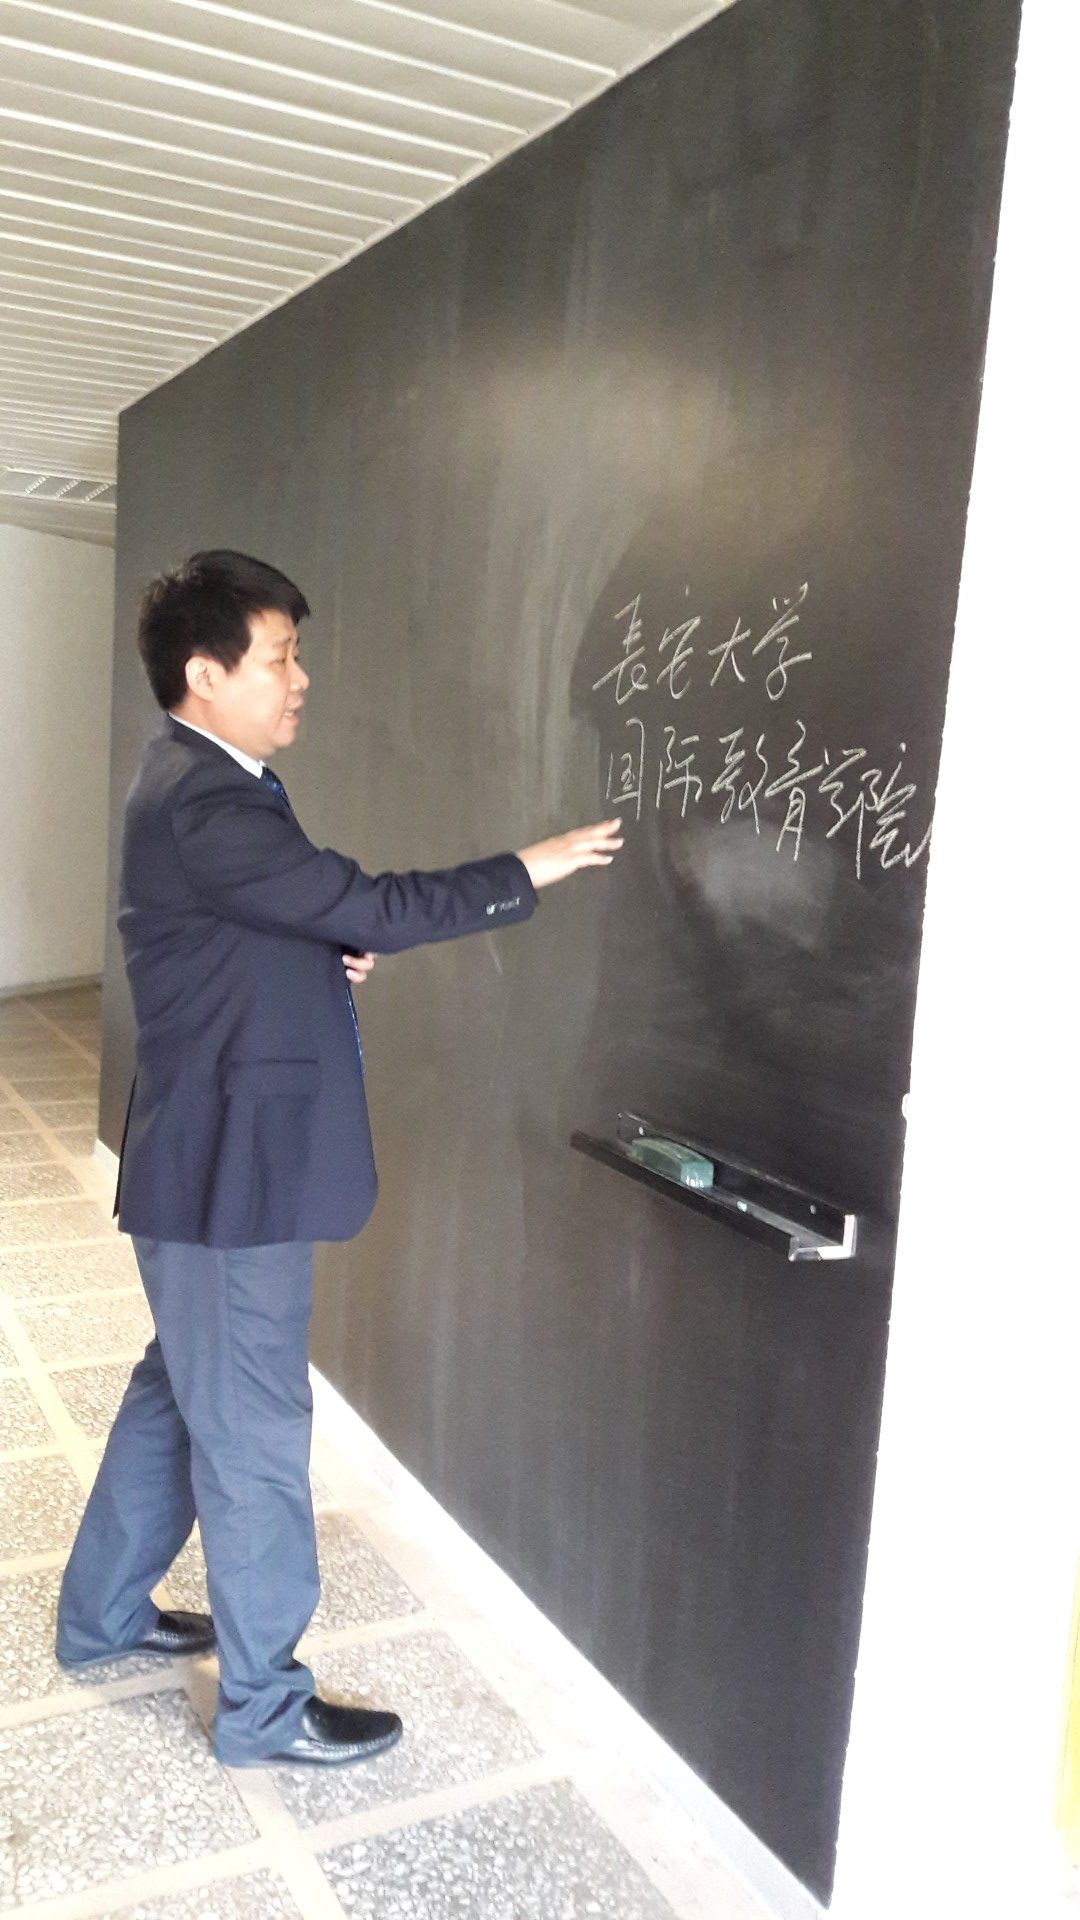 長安大学
国际教育学院